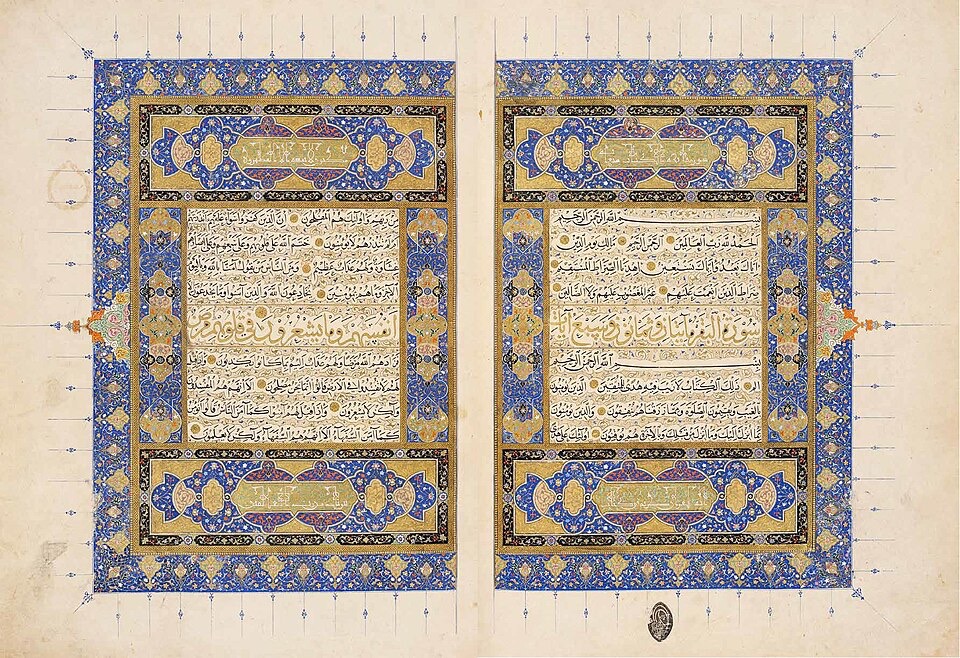 سورة فاتحة الكتاب
بسم الله الرحمن الرحيم
الحمد لله رب العالمين الرحمن الرحيم مالك يوم الدين
اياك نعبد واياك نستعين اهدنا الصراط المستقيم
صراط الذين انعمت عليهم غير المغضوب عليهم ولا الضالين
سورة البقرة مائتان وثمانون وسبع آيات
بسم الله الرحمن الرحيم
الم ذلك الكتاب لا ريب فيه هدى للمتقين الذين يؤمنون
بالغيب ويقيمون الصلوة ومما رزقناهم ينفقون والذين يؤمنون
بما انزل اليك وما انزل من قبلك وبالآخرة هم يوقنون اولئك على هدى
مكنون لا يمسه الا المطهرون
من ربهم واولئك هم المفلحون ان الذين كفروا سواء عليهم ءانذرتهم
ام لم تنذرهم لا يؤمنون ختم الله على قلوبهم وعلى سمعهم وعلى ابصارهم
غشاوة ولهم عذاب عظيم ومن الناس من يقول آمنا بالله وباليوم
الآخر وما هم بمؤمنين يخادعون الله والذين آمنوا وما يخدعون الا
انفسهم وما يشعرون في قلوبهم مرض
فزادهم الله مرضا ولهم عذاب اليم بما كانوا يكذبون واذا قيل
لهم لا تفسدوا في الارض قالوا انما نحن مصلحون الا انهم هم المفسدون
ولكن لا يشعرون واذا قيل لهم آمنوا كما آمن الناس قالوا انؤمن
كما آمن السفهاء الا انهم هم السفهاء ولكن لا يعلمون